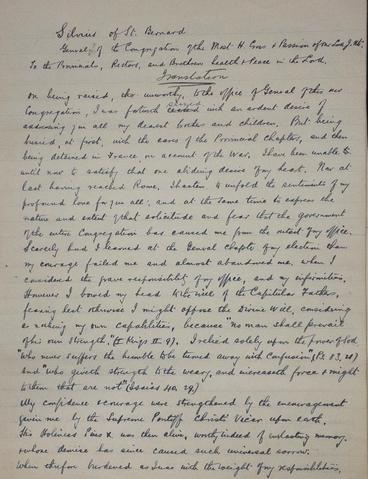 Silvius of St. Bernard
General of the Congregation of the Most H. Cross & Passion of our Lord J. Ch.
To the Provincials, Rectors, and Brethren health & Peace in the Lord.
Translation
On being raised, tho' unworthy, to the office of General of this our
Congregation, I was forthwith seized with an ardent desire of
addressing you all my dearest brothers and children. But being
busied, at first, with the cares of the Provincial Chapters, and then
being detained in France, on account of the War, I have been unable to
until now to satisfy that one abiding desire of my heart. Now at
last having reached Rome, I hasten to unfold the sentiments of my
profound love for you all: and at the same time to express the
nature and extent of that solicitude and fear that the government
of the entire Congregation has caused me from the outset of my office.
Scarcely had I learned at the General Chapter of my election than
my courage failed me and almost abandoned me, when I
considered the grave responsibility of my office, and my infirmities.
However I bowed my head to the will of the Capitular Fathers,
fearing lest otherwise I might oppose the Divine Will, considering
as nothing my own capabilities, because "no man shall prevail
of his own strength." (I Kings II. 9). I relied solely upon the power of God
"who never suffers the humble to be turned away with confusion" (Ps.
and "who giveth strength to the weary, and increaseth force & might
to them that are not" (Isaias 40. 29.)
My confidence & courage were strengthened by the encouragement
given me by the Supreme Pontiff Christ's Vicar upon earth.
His Holiness Pius X. was then alive, worthy indeed of everlasting memory,
& whose demise has since caused such universal sorrow.
When therefore burdened as I was with the weight of my responsibilities,